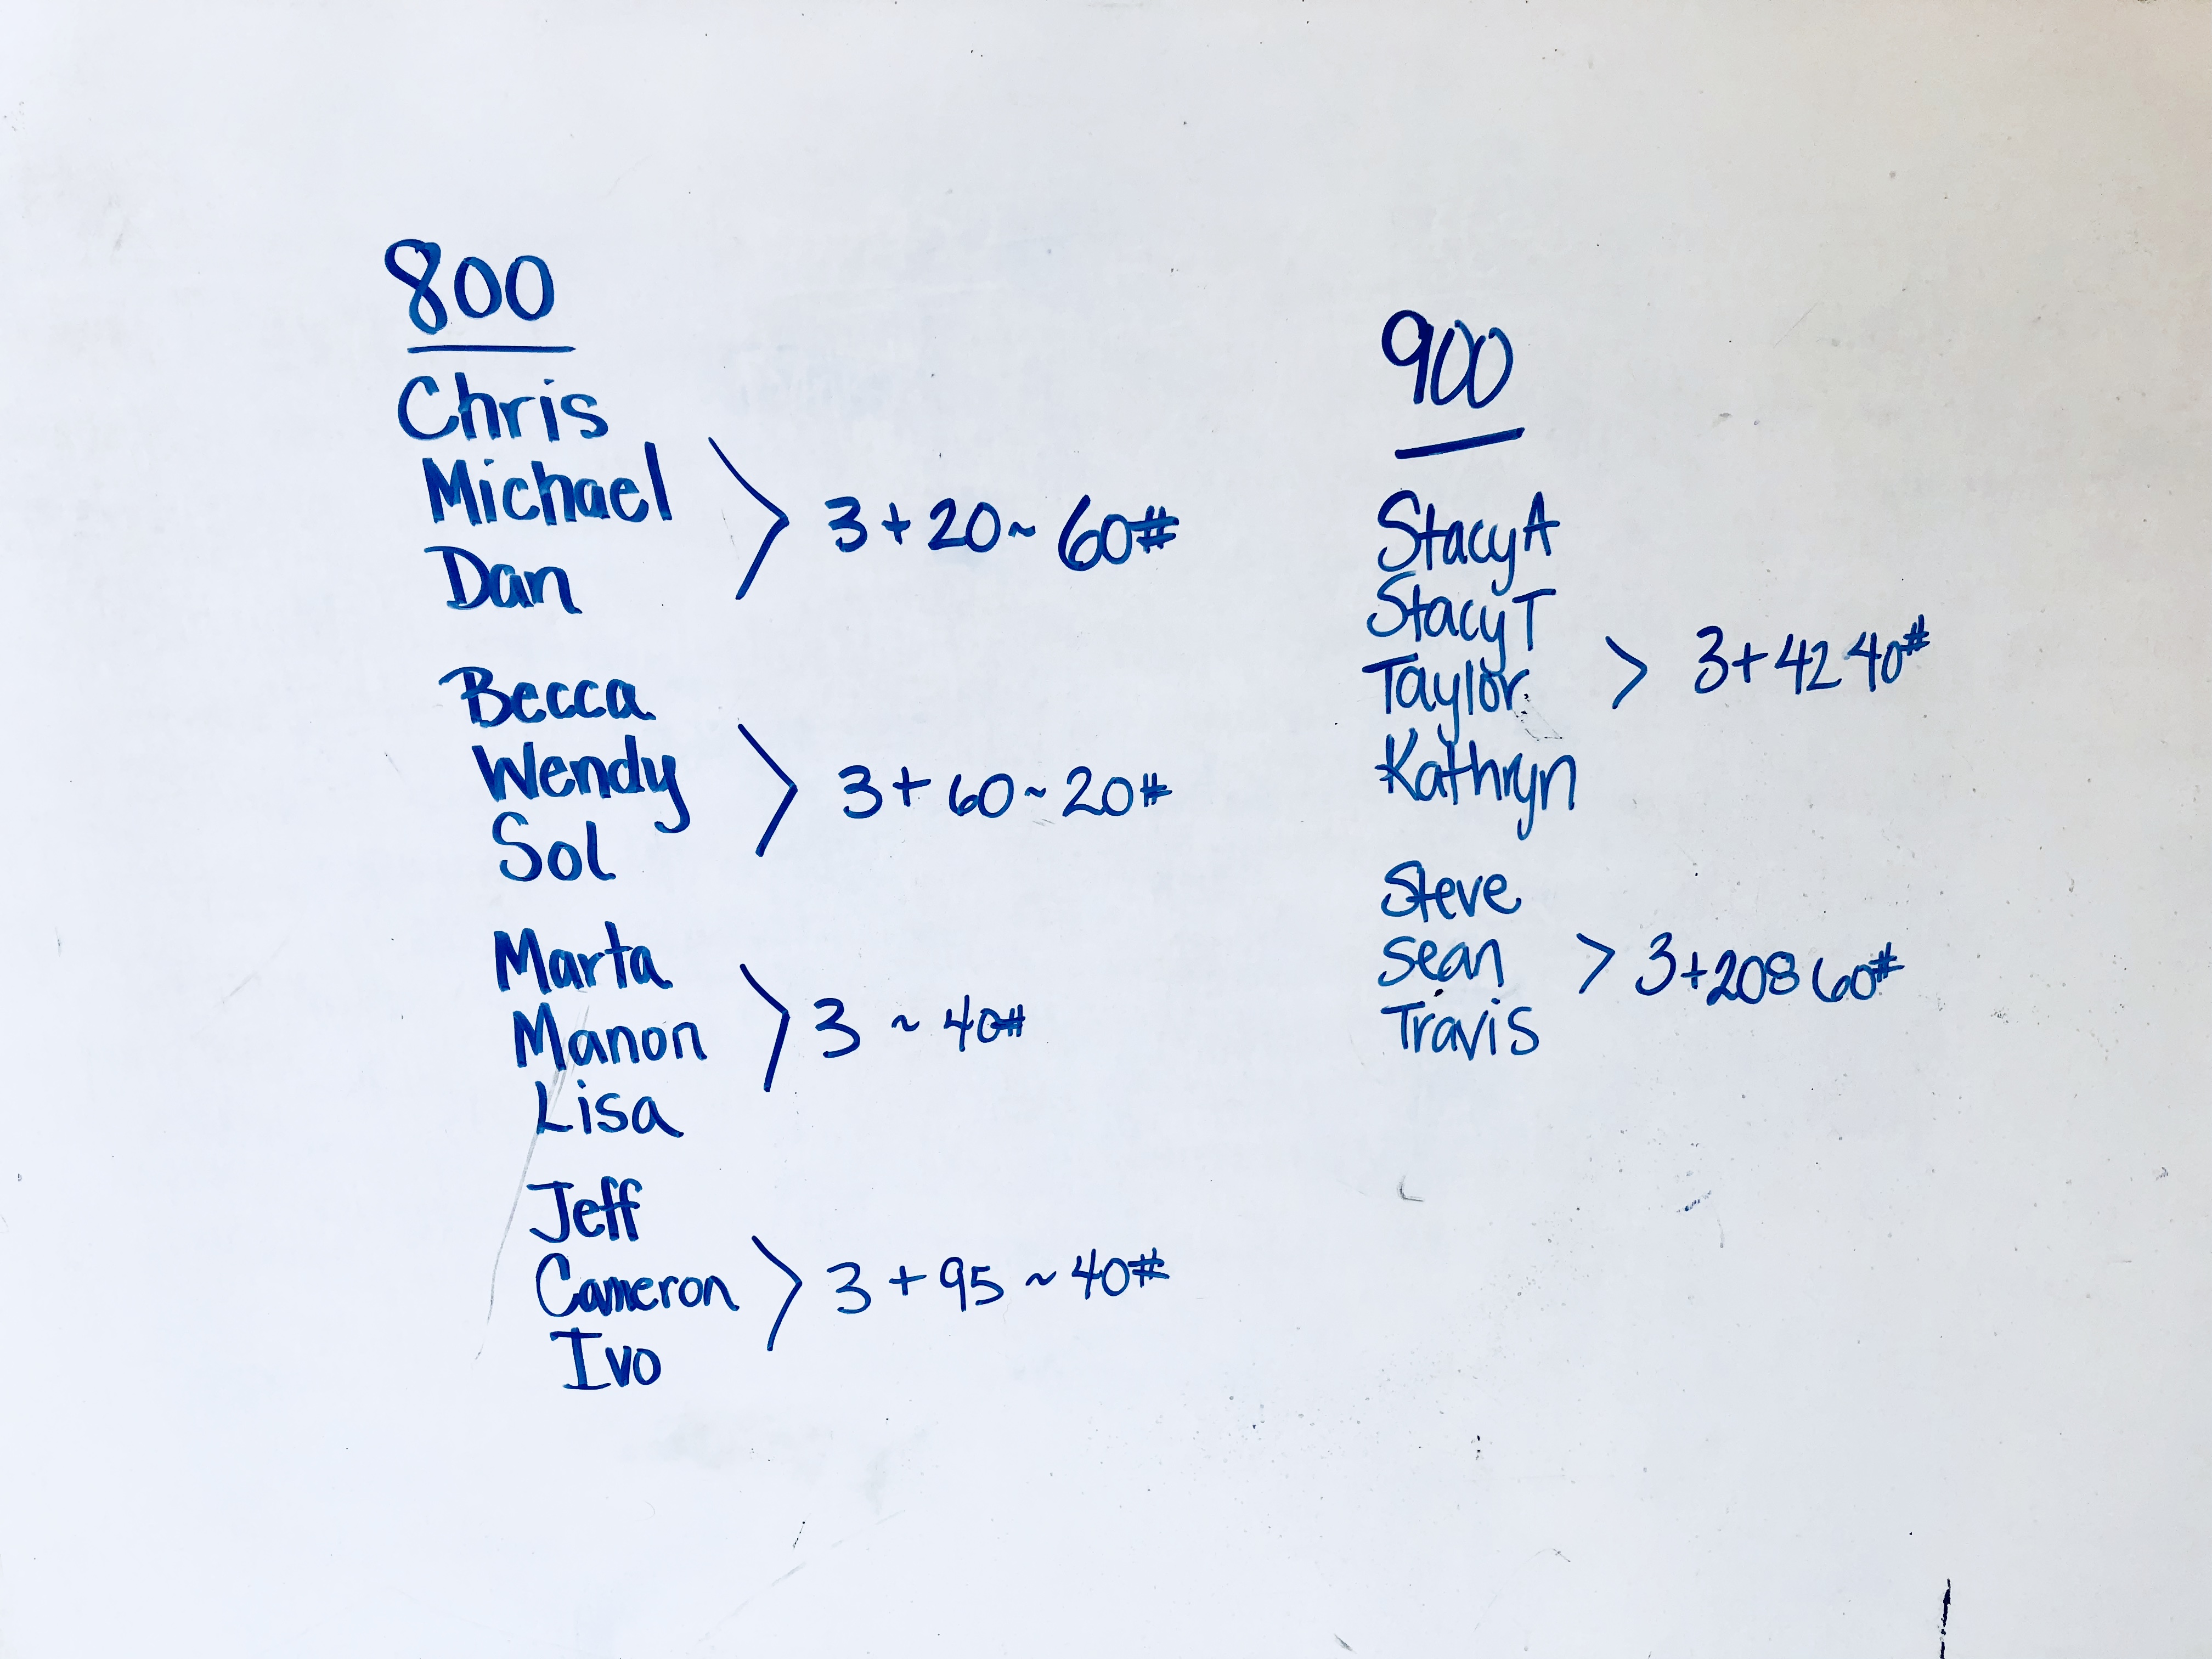 800
Chris
Michael
Dan
> 3 + 20 ~ 60#
Becca
Wendy
Sol
> 3 + 60 ~ 20#
Marta
Manon
Lisa
> 3 ~ 40#
Jeff
Cameron
Ivo
> 3 + 95 ~ 40#
900
Stacy A
Stacy T
Taylor
Kathryn
> 3 + 42 40#
Steve
Sean
Travis
> 3 + 208 60#